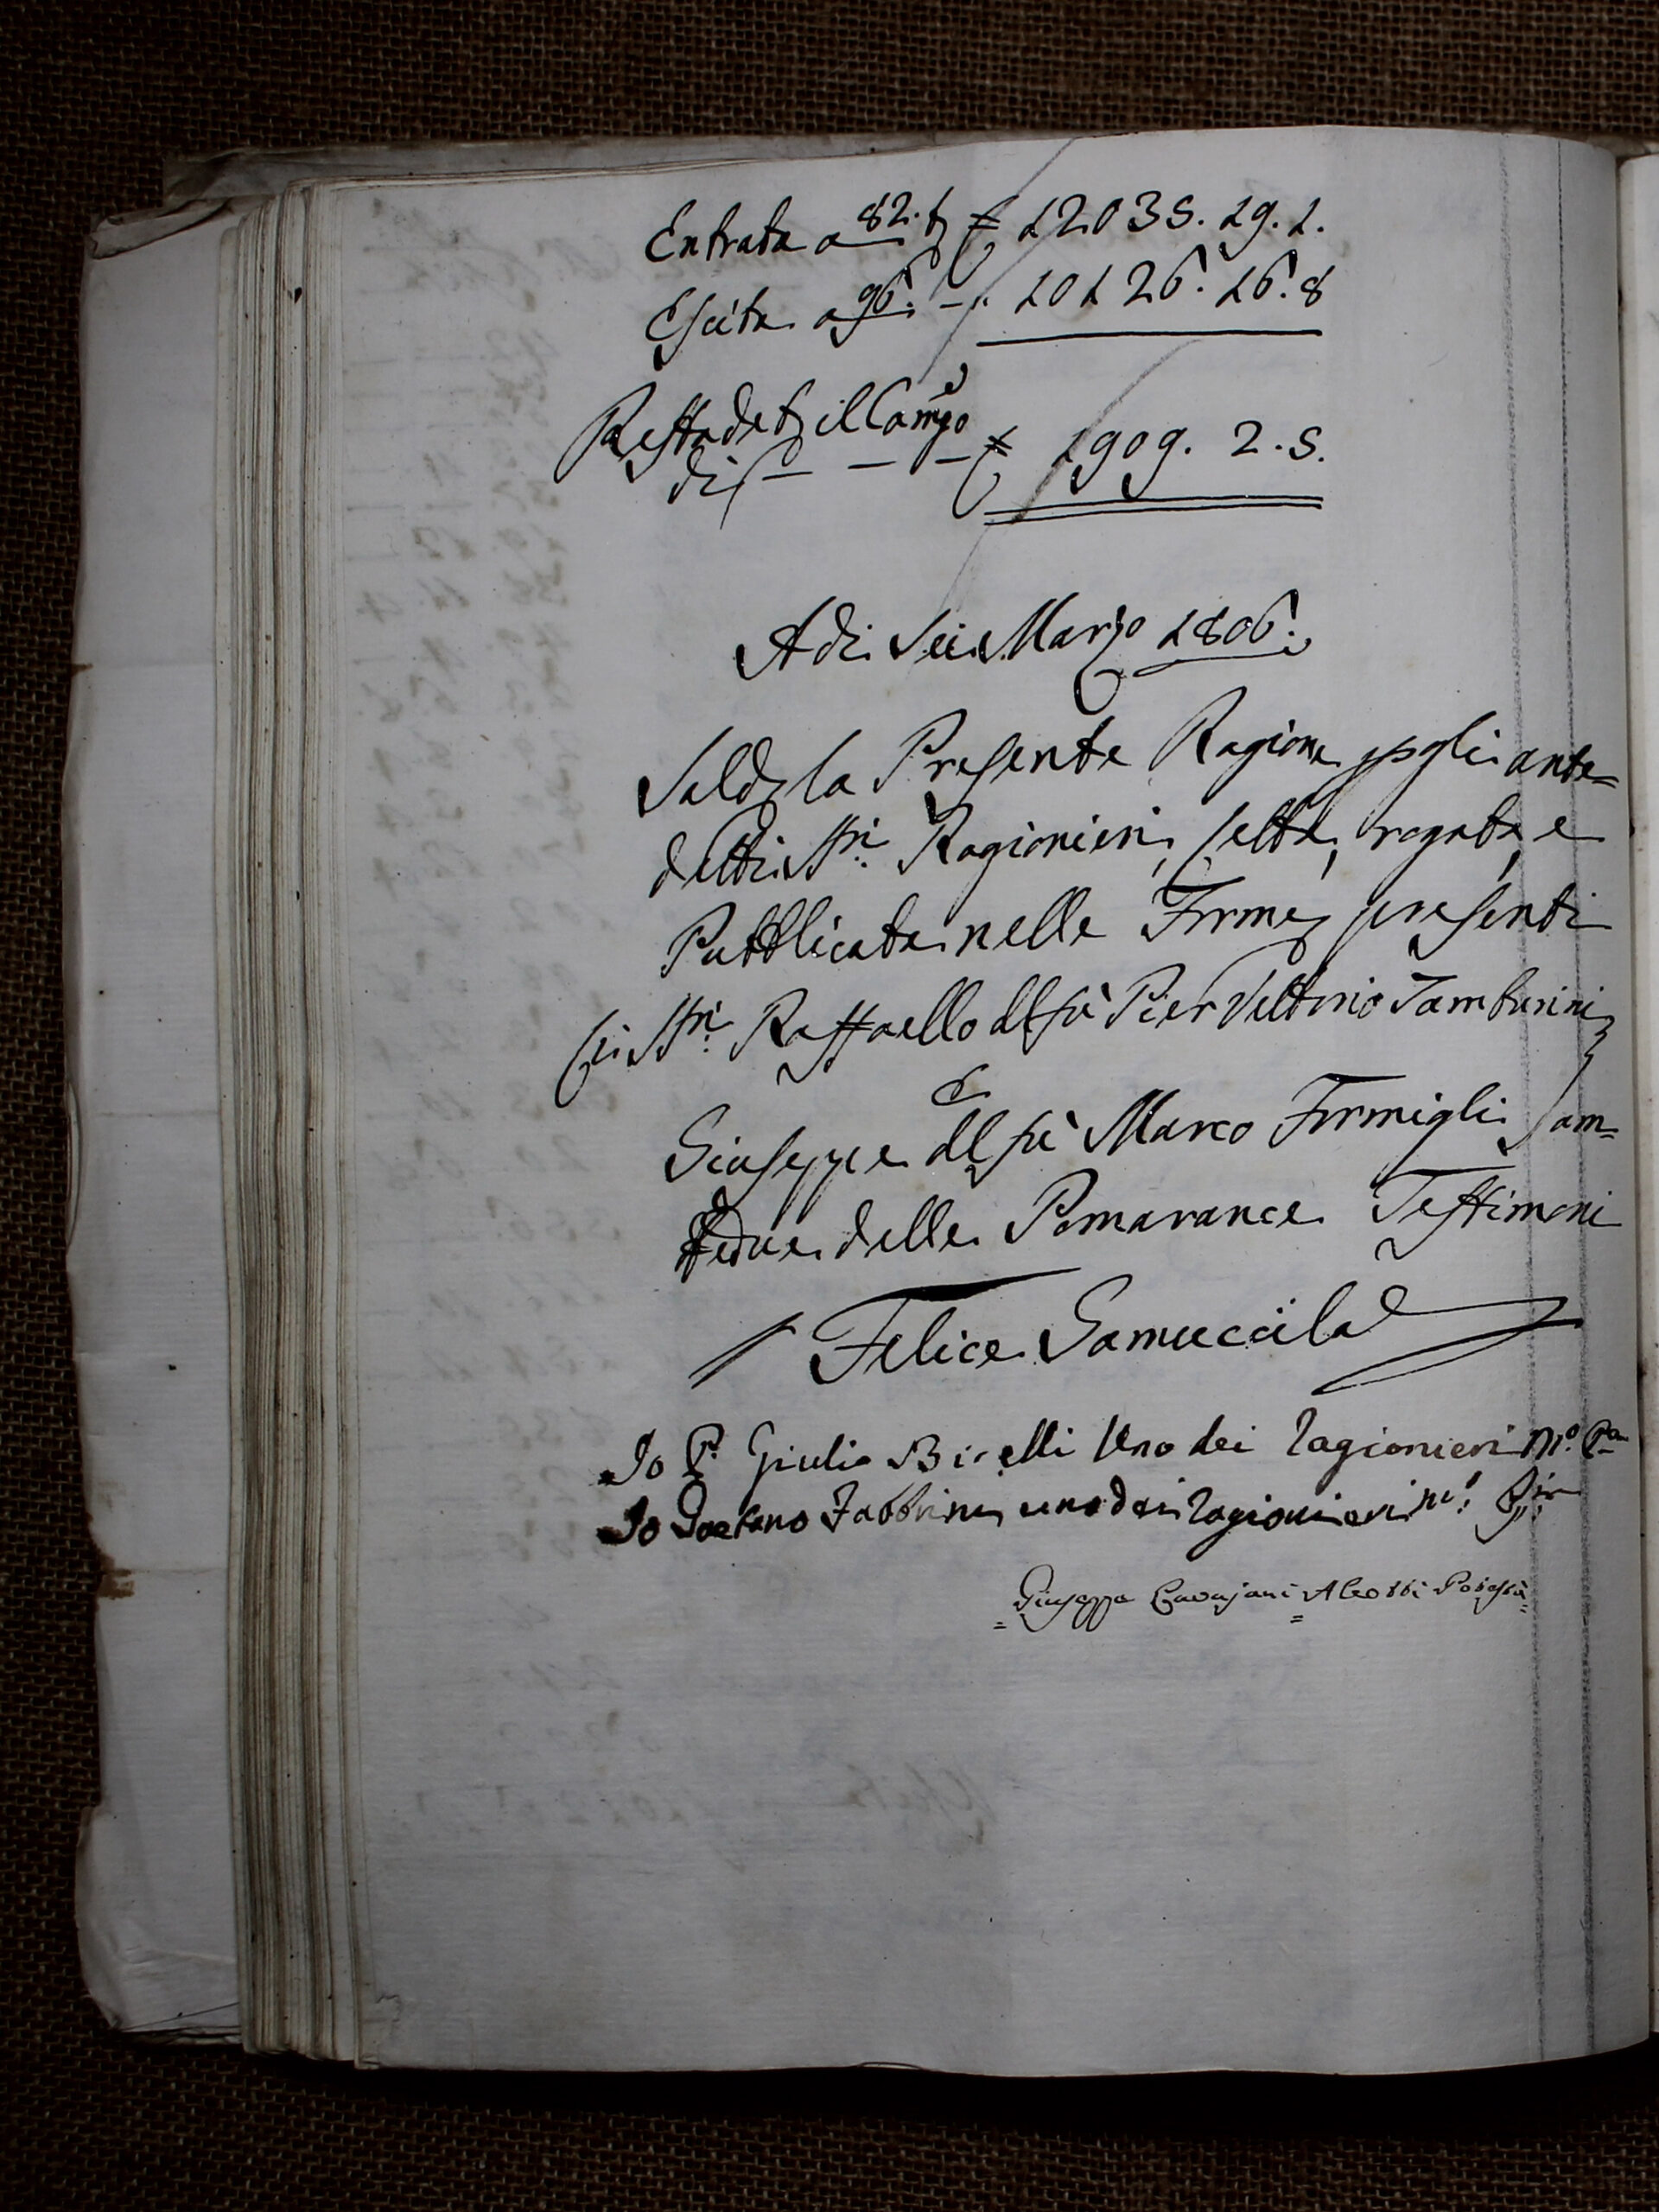 Entrata a 82.t £ 12035. 19. 1.
Escita a 96. — 10126. 16. 8
Resta det. il Camgo
di — — — £ 1909. 2. 5.
Adi Sei Marzo 1806.
Sald. la Presente Ragione p gli ante=
detti SSri. Ragionieri, letta, rogata, e
Pubblicata nelle Forme, presenti
li SSri. Raffaello del fù Pier Vettorio Tamburini,
e
Giuseppe del fù Marco Formigli Jam=
bedue delle Pomarance Testimoni
Felice Samuccila
Io P. Giulio Bicelli Uno dei Ragionieri
Io Gaetano Fabbrini uno dei ragionieri
Giuseppe Aleotti Potestà